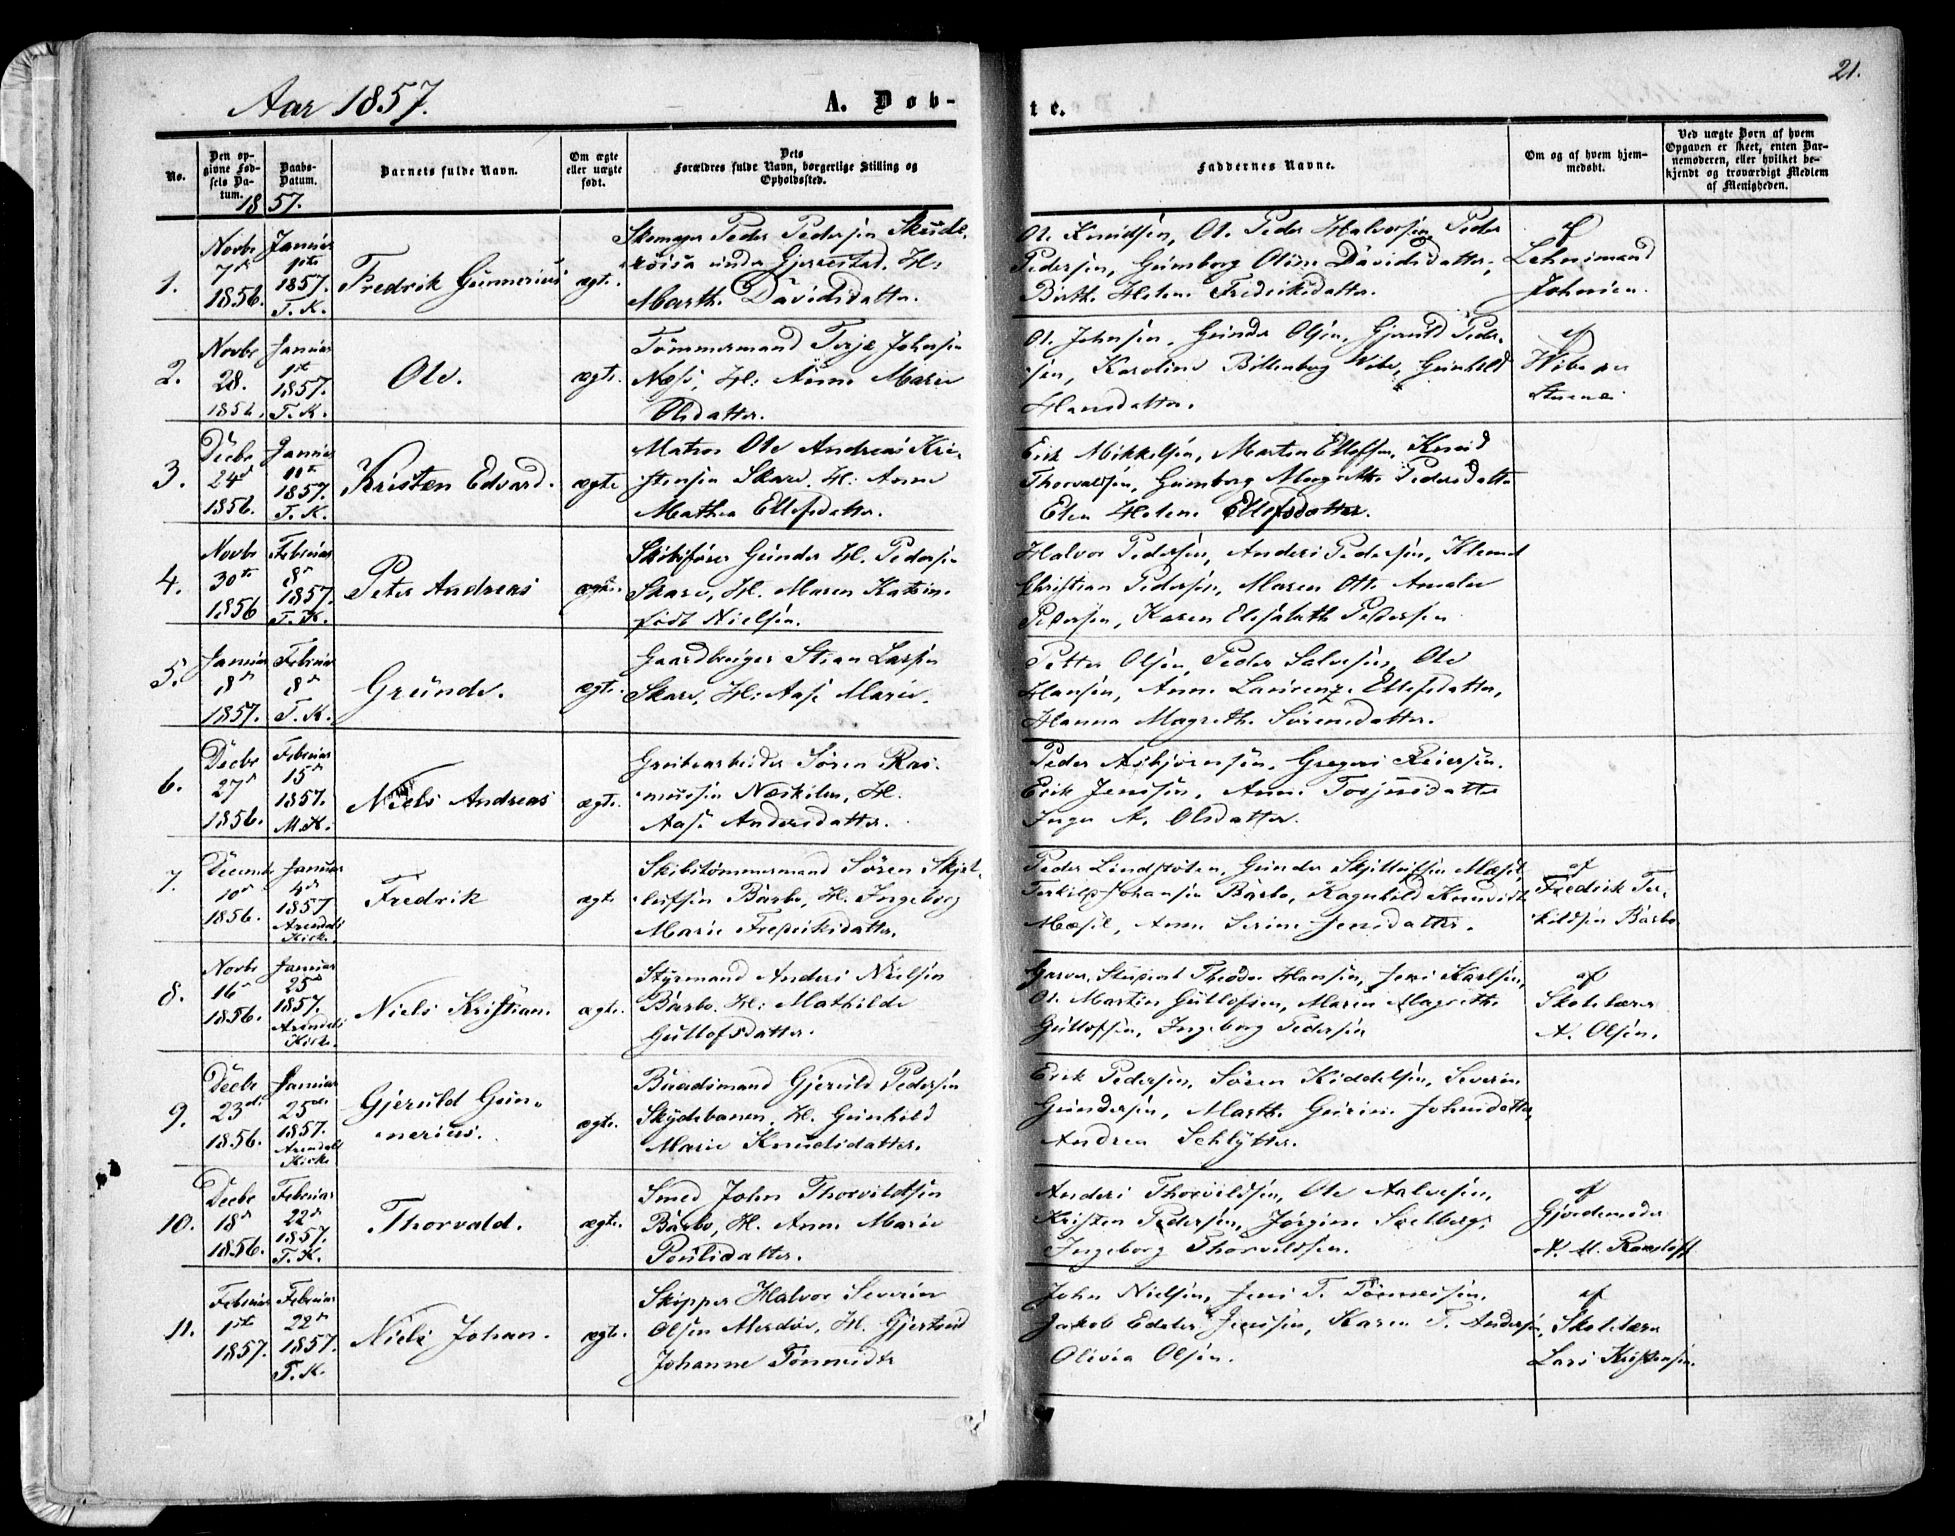 21.
Aar 1857. A. Døb-
te.
No.
Den op-
givne Fød-
sels Da-
tum.
Daabs-
Datum.
1857.
Barnets fulde Navn.
Om ægte
eller uægte
født.
Dets
Forældres fulde Navn, borgerlige Stilling og
Opholdssted.
Faddernes Navne.
Om og af hvem hjem-
medøbt.
Ved uægte Born af hvem
Opgaven er skeet, enten Bar-
nemoderen, eller hvilket be-
kjendt og troværdigt Medlem
af Menigheden.
1.
Novbr
7de
1856.
Januar
1ste
1857.
T. K.
Fredrik Gunnerius
ægte.
Skomager Peder Pedersen
under Gjerrestad. H:
Marthe Davidsdatter.
Ole Knudsen, Ole Peder Halvorsen, Peder
Pedersen, Gumborg Oline Davidsdatter,
Birthe Helene Fredriksdatter.
af
Lehnsmand
Johnsen.
2.
Novbr
28.
1856.
Januar
1ste
1857.
T. K.
Ole.
ægte.
Tømmermand Terje Johnsen
Næs, H: Anne Marie
Olsdatter.
Ole Johnsen, Gunder Olsen, Gjeruld Peder-
sen, Karoline Wibe, Gunhild
Hansdatter.
af
Wibe
3.
Decbr
24de
1856.
Januar
11te
1857.
T. K.
Kristen Edvard.
ægte
Matros Ole Andreas Kri-
stensen Skare, H: Anne
Mathea Ellefsdatter.
Erik Mikkelsen, Martin Ellefsen, Knud
Thorvaldsen, Gumborg Magrethe Pedersdatter
Elen Helene Ellefsdatter.
4.
Novbr
30te
1856
Februar
8de
1857.
T. K.
Peter Andreas
ægte.
Skibsfører Gunder H. Pedersen
Skare, H. Maren Katrine
født Nielsen.
Halvor Pedersen, Anders Pedersen, Klemet
Christian Pedersen, Maren Oth. Amalie
Pedersen, Karen Elisabeth Pedersen
5.
Januar
8de
1857.
Februar
8de
T. K.
Grunde.
ægte.
Gaardbruger Stian Larsen
Skare, H. Aase Marie.
Petter Olsen, Peder Salvesen, Ole
Hansen, Anne Laurenze Ellefsdatter,
Hanna Magrethe Sørensdatter.
6.
Decbr
27de
1856.
Februar
15de
1857.
M. K.
Niels Andreas
ægte.
Grubearbeider Søren Ras-
mussen Næskilen, H.
Aase Andersdatter.
Peder Asbjørnsen, Gregers Reiersen,
Erik Jenssen, Anne Torjusdatter
Inger A. Olsdatter.
7.
Decemb
10de
1856.
Januar
4de
1857
Arendals
Kirke.
Fredrik
ægte
Skibstømmermand Søren Skjel-
lufsen Barbo, H. Ingeborg
Marie Fredriksdatter.
Peder Lindstøten, Gunder
Terkild Johansen Barbo, Ragnhild Knuds
Mæsel, Anne Serine Jensdatter.
af
Fredrik Ter-
kildsen Barbo
8.
Novbr
16de
1856.
Januar
25de
1857.
Arendals
Kirke.
Niels Kristian.
ægte.
Styrmand Anders Nielsen
Barbo. H: Mathilde
Gullofsdatter.
Garver Theodor Hansen, Jens Karlsen,
Ole Martin Gullofsen, Maren Magrethe
Gullofsen, Ingeborg Pedersen
af
Skolelærer
N. Olsen.
9.
Decbr
23de
1856.
Januar
25de
1857.
Arendals
Kirke
Gjeruld Gun-
nerius.
ægte.
Baadsmand Gjeruld Pedersen
Skydebanen, H. Gunhild
Marie Knudsdatter.
Erik Pedersen, Søren Kiddelsen, Severin
Gundersen, Marthe Gurine Johnsdatter,
Andrea Schlytter.
10.
Decbr
18de
1856.
Februar
22de
1857.
T. K.
Thorvald.
ægte.
Smed John Thorvildsen
Barbo, H. Anne Marie
Poulsdatter.
Anders Thorvildsen, Ole Aalvesen,
Kristen Pedersen, Jørgine Soelberg,
Ingeborg Thorvildsen.
af
Gjordemoder
A. M. Ramsloff
11.
Februar
1ste
1857.
Februar
22de
1857.
T. K.
Niels Johan.
ægte.
Skipper Halvor Severin
Olsen Merdø, H. Gjertrud
Johanne Tønnesdtr
John Nielsen, Jens T. Tønnesen,
Jakob Edeler Jenssen, Karen T. Andersen,
Olivia Olsen.
af
Skolelærer
Lars Kristensen.